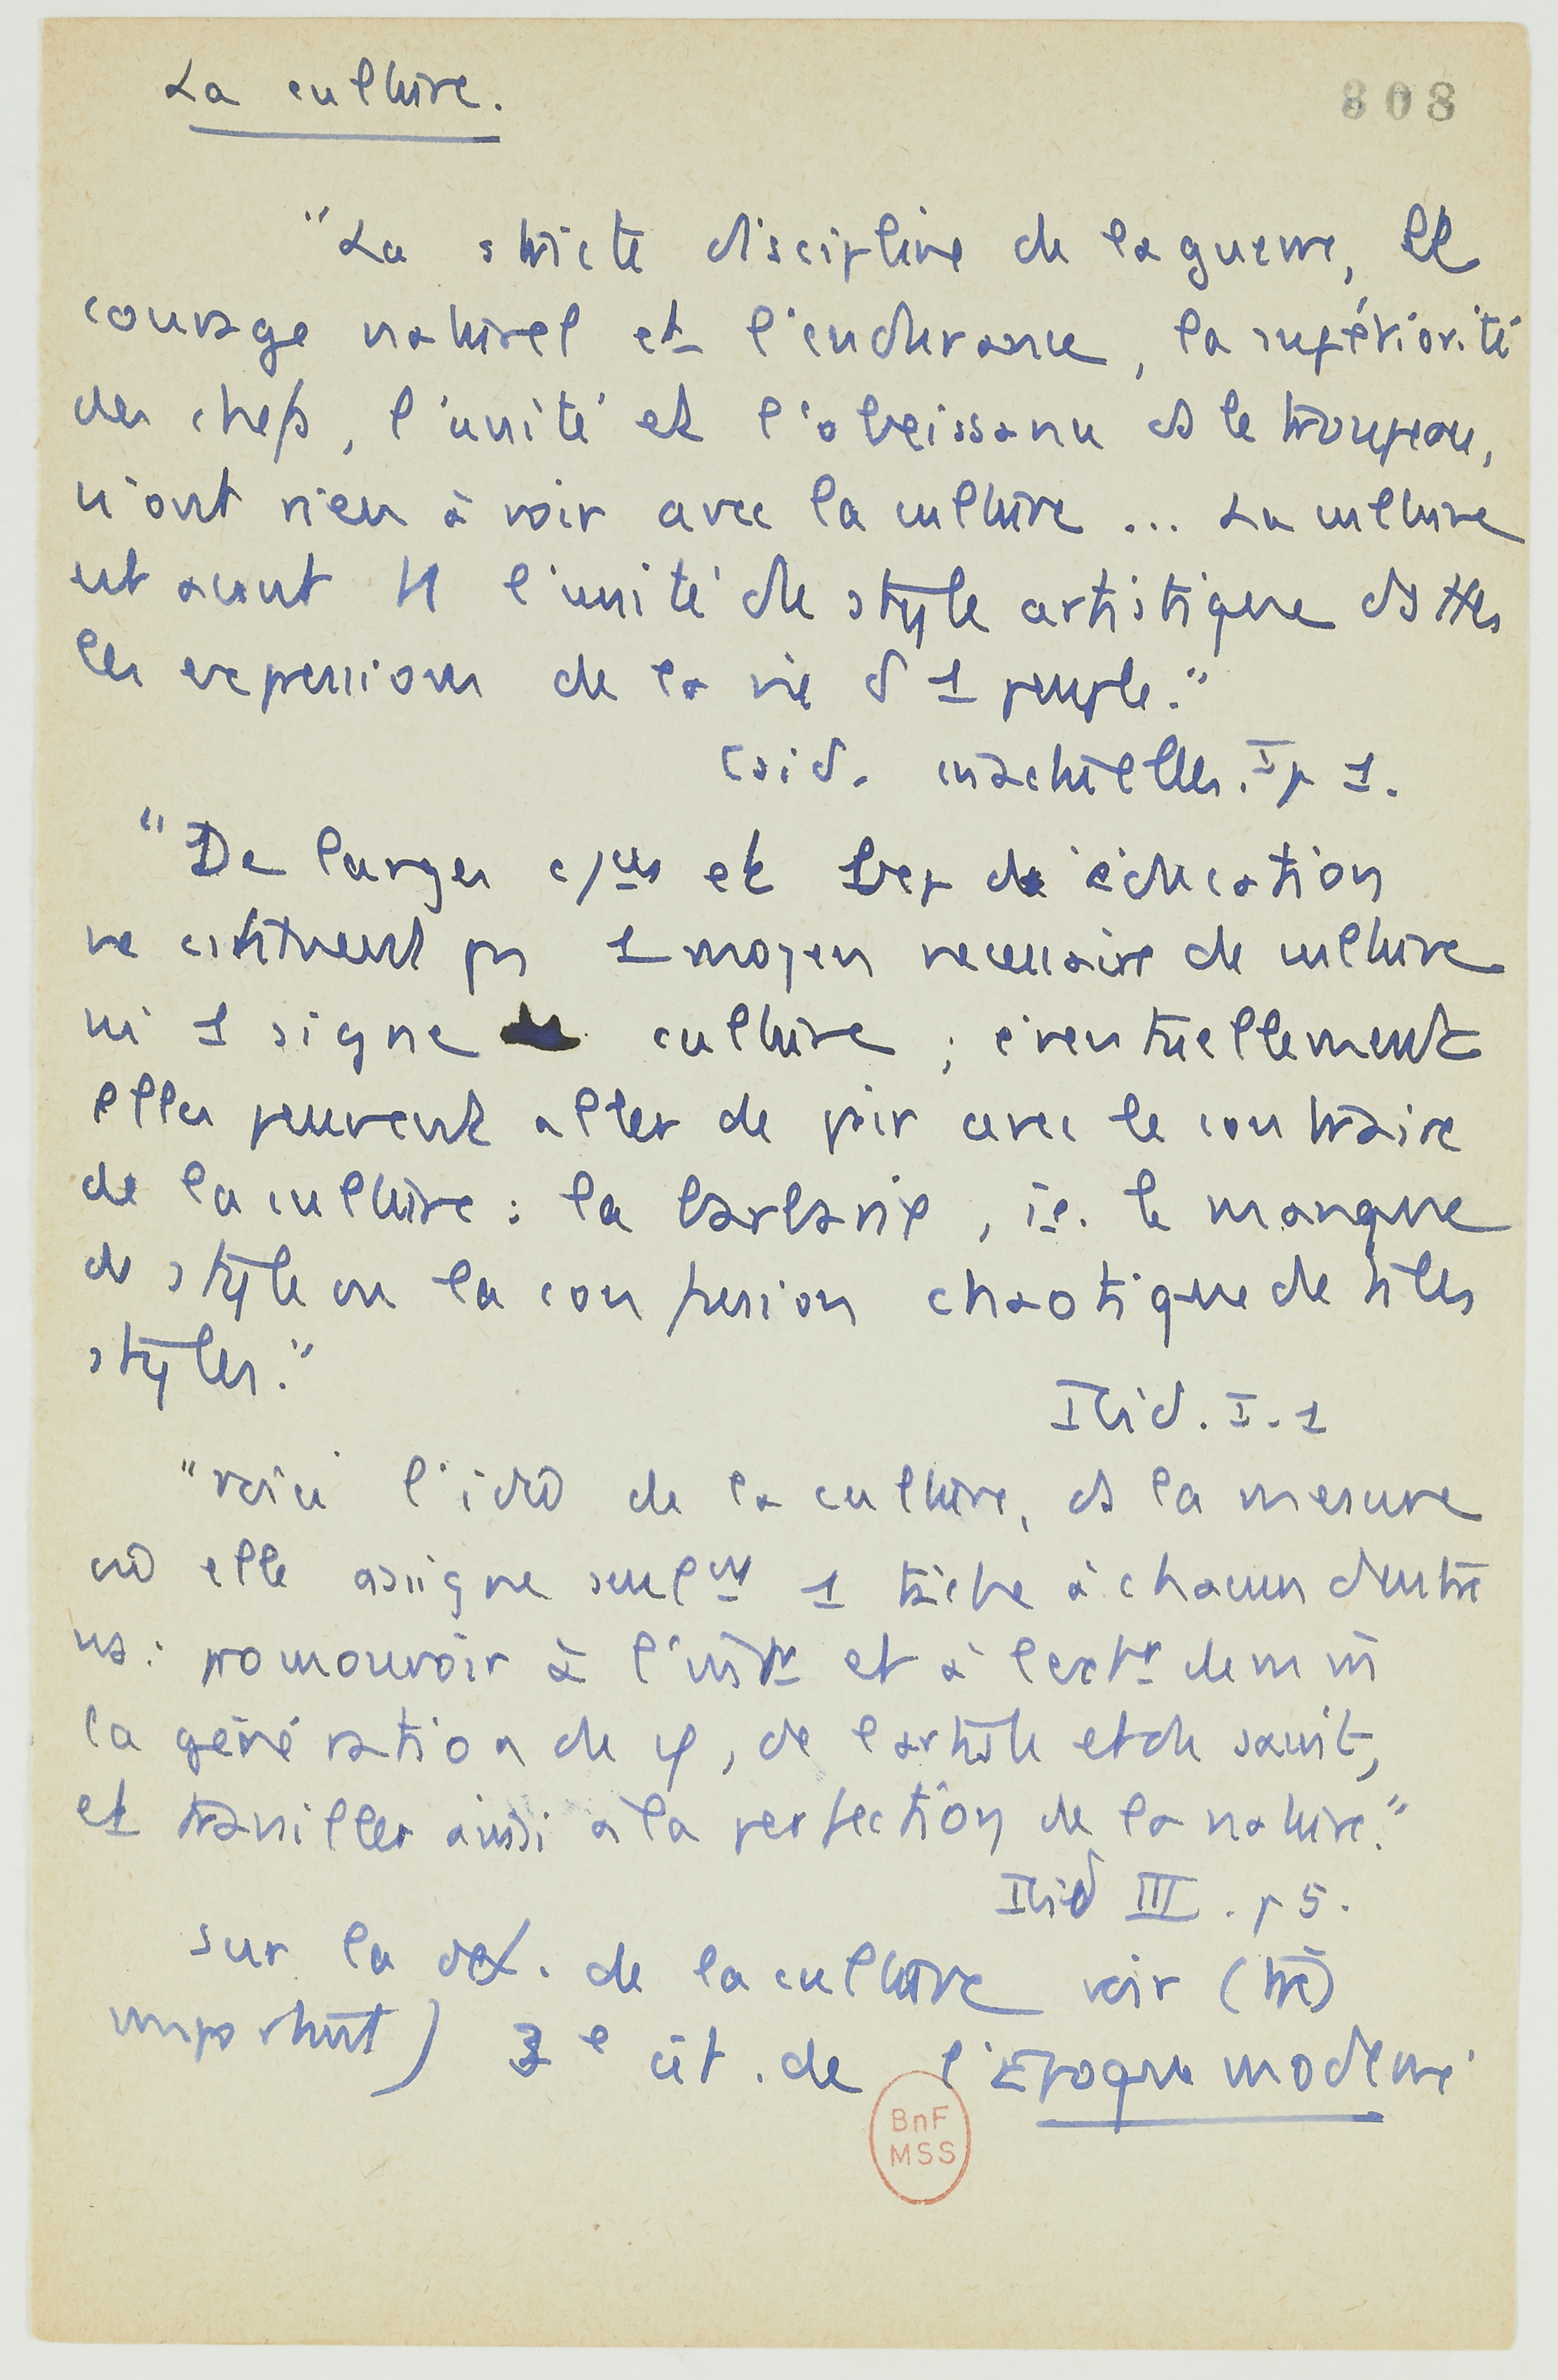 La culture.
808
"La stricte discipline de la guerre, le
courage naturel et l'endurance, la supériorité
des chefs, l'unité et l'obeissance ds le troupeau,
n'ont rien à voir avec la culture ... La culture
est avant tt l'unité de style artistique ds ttes
les expressions de la vie d 1 peuple."
Csid. inactuelles. I p 1.
"De larges c/ces et bcp de éducation
ne constituent ps 1 moyen necessaire de culture
ni 1 signe culture ; éventuellement
elles peuvent aller de pair avec le contraire
de la culture : la barbarie, i.e. le manque
de style ou la confusion chaotique de ts les
styles."
Ibid. I. 1
"voici l'idée de la culture, ds la mesure
où elle assigne seulmt 1 tâche à chacun dentre
ns : promouvoir à l'intr et à lextr de ns m̄
la génération de φ, de lartiste et du saint,
et travailler ainsi à la perfection de la nature."
Ibid III. p 5.
Sur la def. de la culture voir (très
important) 3e cit. de l'Epoque moderne
BnF
MSS